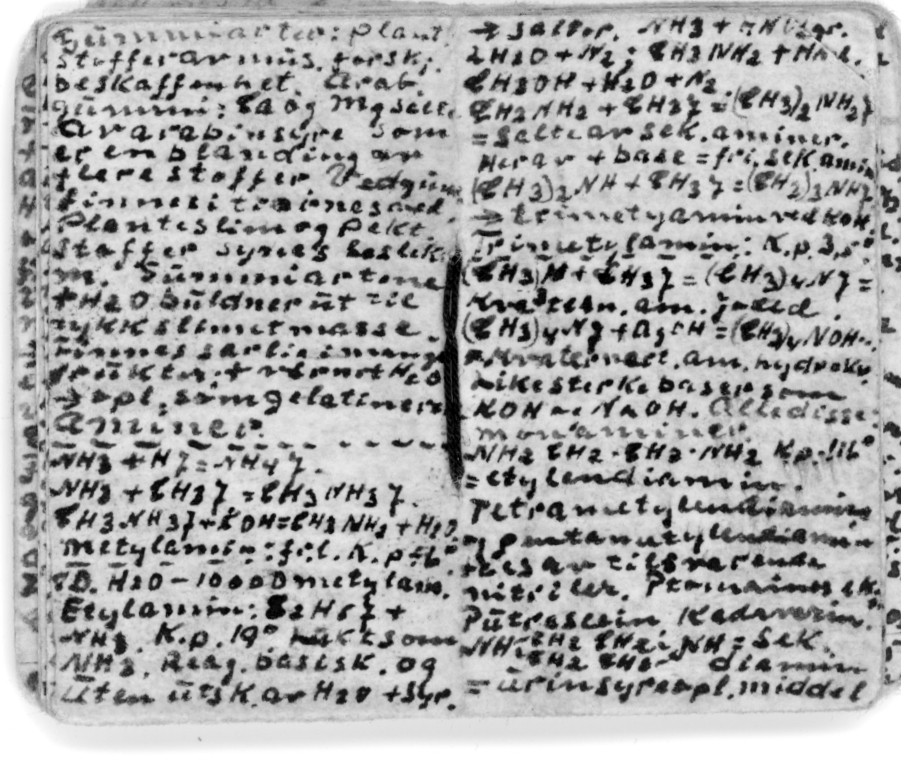 Gümmiarter: Plant.
stoffer av müs. forsk;
beskaffenhet. Arab.
gümmi: Ca og Mg salt.
av arabinsyre som
er en blanding av
flere stoffer Vedgüm
finnes i
Planteslim og Pekt.
stoffer synes beslik
m. Gümmiartene
+ H2O büldner üt til
tykk slimet masse.
Finnes særlig i mange
früktr. + varmt H2O
→ opl. som gelatinerer
Aminer.
NH3 + HJ = NH4J.
NH3 + CH3J = CH3NH3J.
CH3NH3J + KOH = CH3NH2 + H2O
Metylamin: frl. K.p ÷6°
1D. H2O – 1000D metylam.
Etylamin: C2H5J +
NH3. K.p. 19° lükt som
NH3. Reag. basisk. og
üten ütsk. av H2O + syr.
→ salter. NH3 +
2H2O + N2; CH3NH2 +
CH3OH + H2O + N2
CH3NH2 + CH3J = (CH3)2NH2J
= salt av sek. aminer.
Herav + base = fri. sek amin
(CH3)2NH + CH3J = (CH3)3NHJ
→ trimetyamin ved KOH
Trimetylamin: K.p. 3,5°
(CH3)3N + CH3J = (CH3)4NJ =
kvatern. am. jodid.
(CH3)4NJ + AgOH = (CH3)4NOH..
= kvaternært. am. hydroks.
like sterke baser som
KOH og NaOH. Alle disse
monaminer.
NH2 CH2·CH2·NH2 K.p. 116°
= etylendiamin.
Tetrametylendiamin
og pentametylendiamin
fåes av tilsvarende
nitriler. Ptomainer
Pütrescin Kadaverin.
NH:CH2 CH2:NH = Sek.
CH2 CH2 diamin
= ürinsyreopl. middel